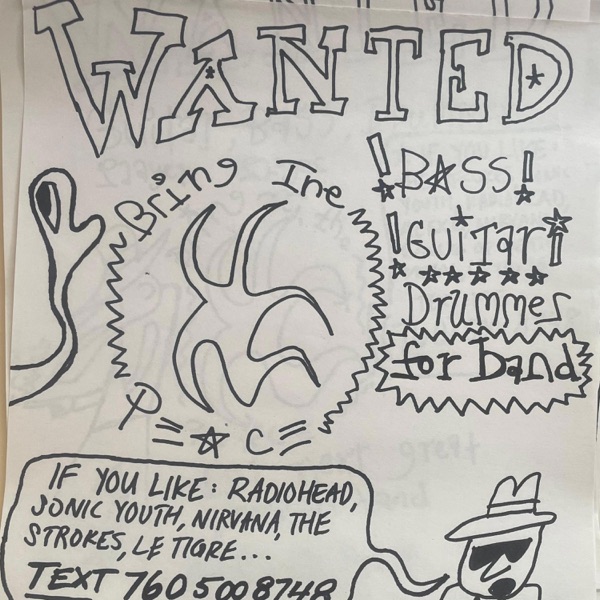 WANTED
Bring The
P E A C E
! BASS!
! GUITAR!
Drummer
for band
IF YOU LIKE: RADIOHEAD,
SONIC YOUTH, NIRVANA, THE
STROKES, LE TIGRE...
TEXT 760 500 8748